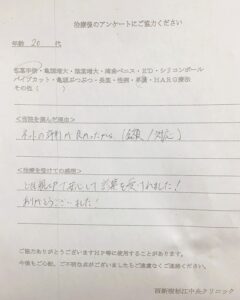 治療後のアンケートにご協力ください
年齢 20 代
包茎手術・亀頭増大・陰茎増大・埋没ペニス・ED・シリコンボール
パイプカット・亀頭ぶつぶつ・長茎・性病・早漏・HARG療法
その他（　　　）
<当院を選んだ理由>
ネットの評判が良かったから（金額/対応）
<治療を受けての感想>
とても親切で安心して診察を受けれました！
ありがとうございました！
ご協力ありがとうございますHP等に使用することがあります。
今後もご心配、ご不明な点がございましたらご連絡ください。
西新宿 中央クリニック